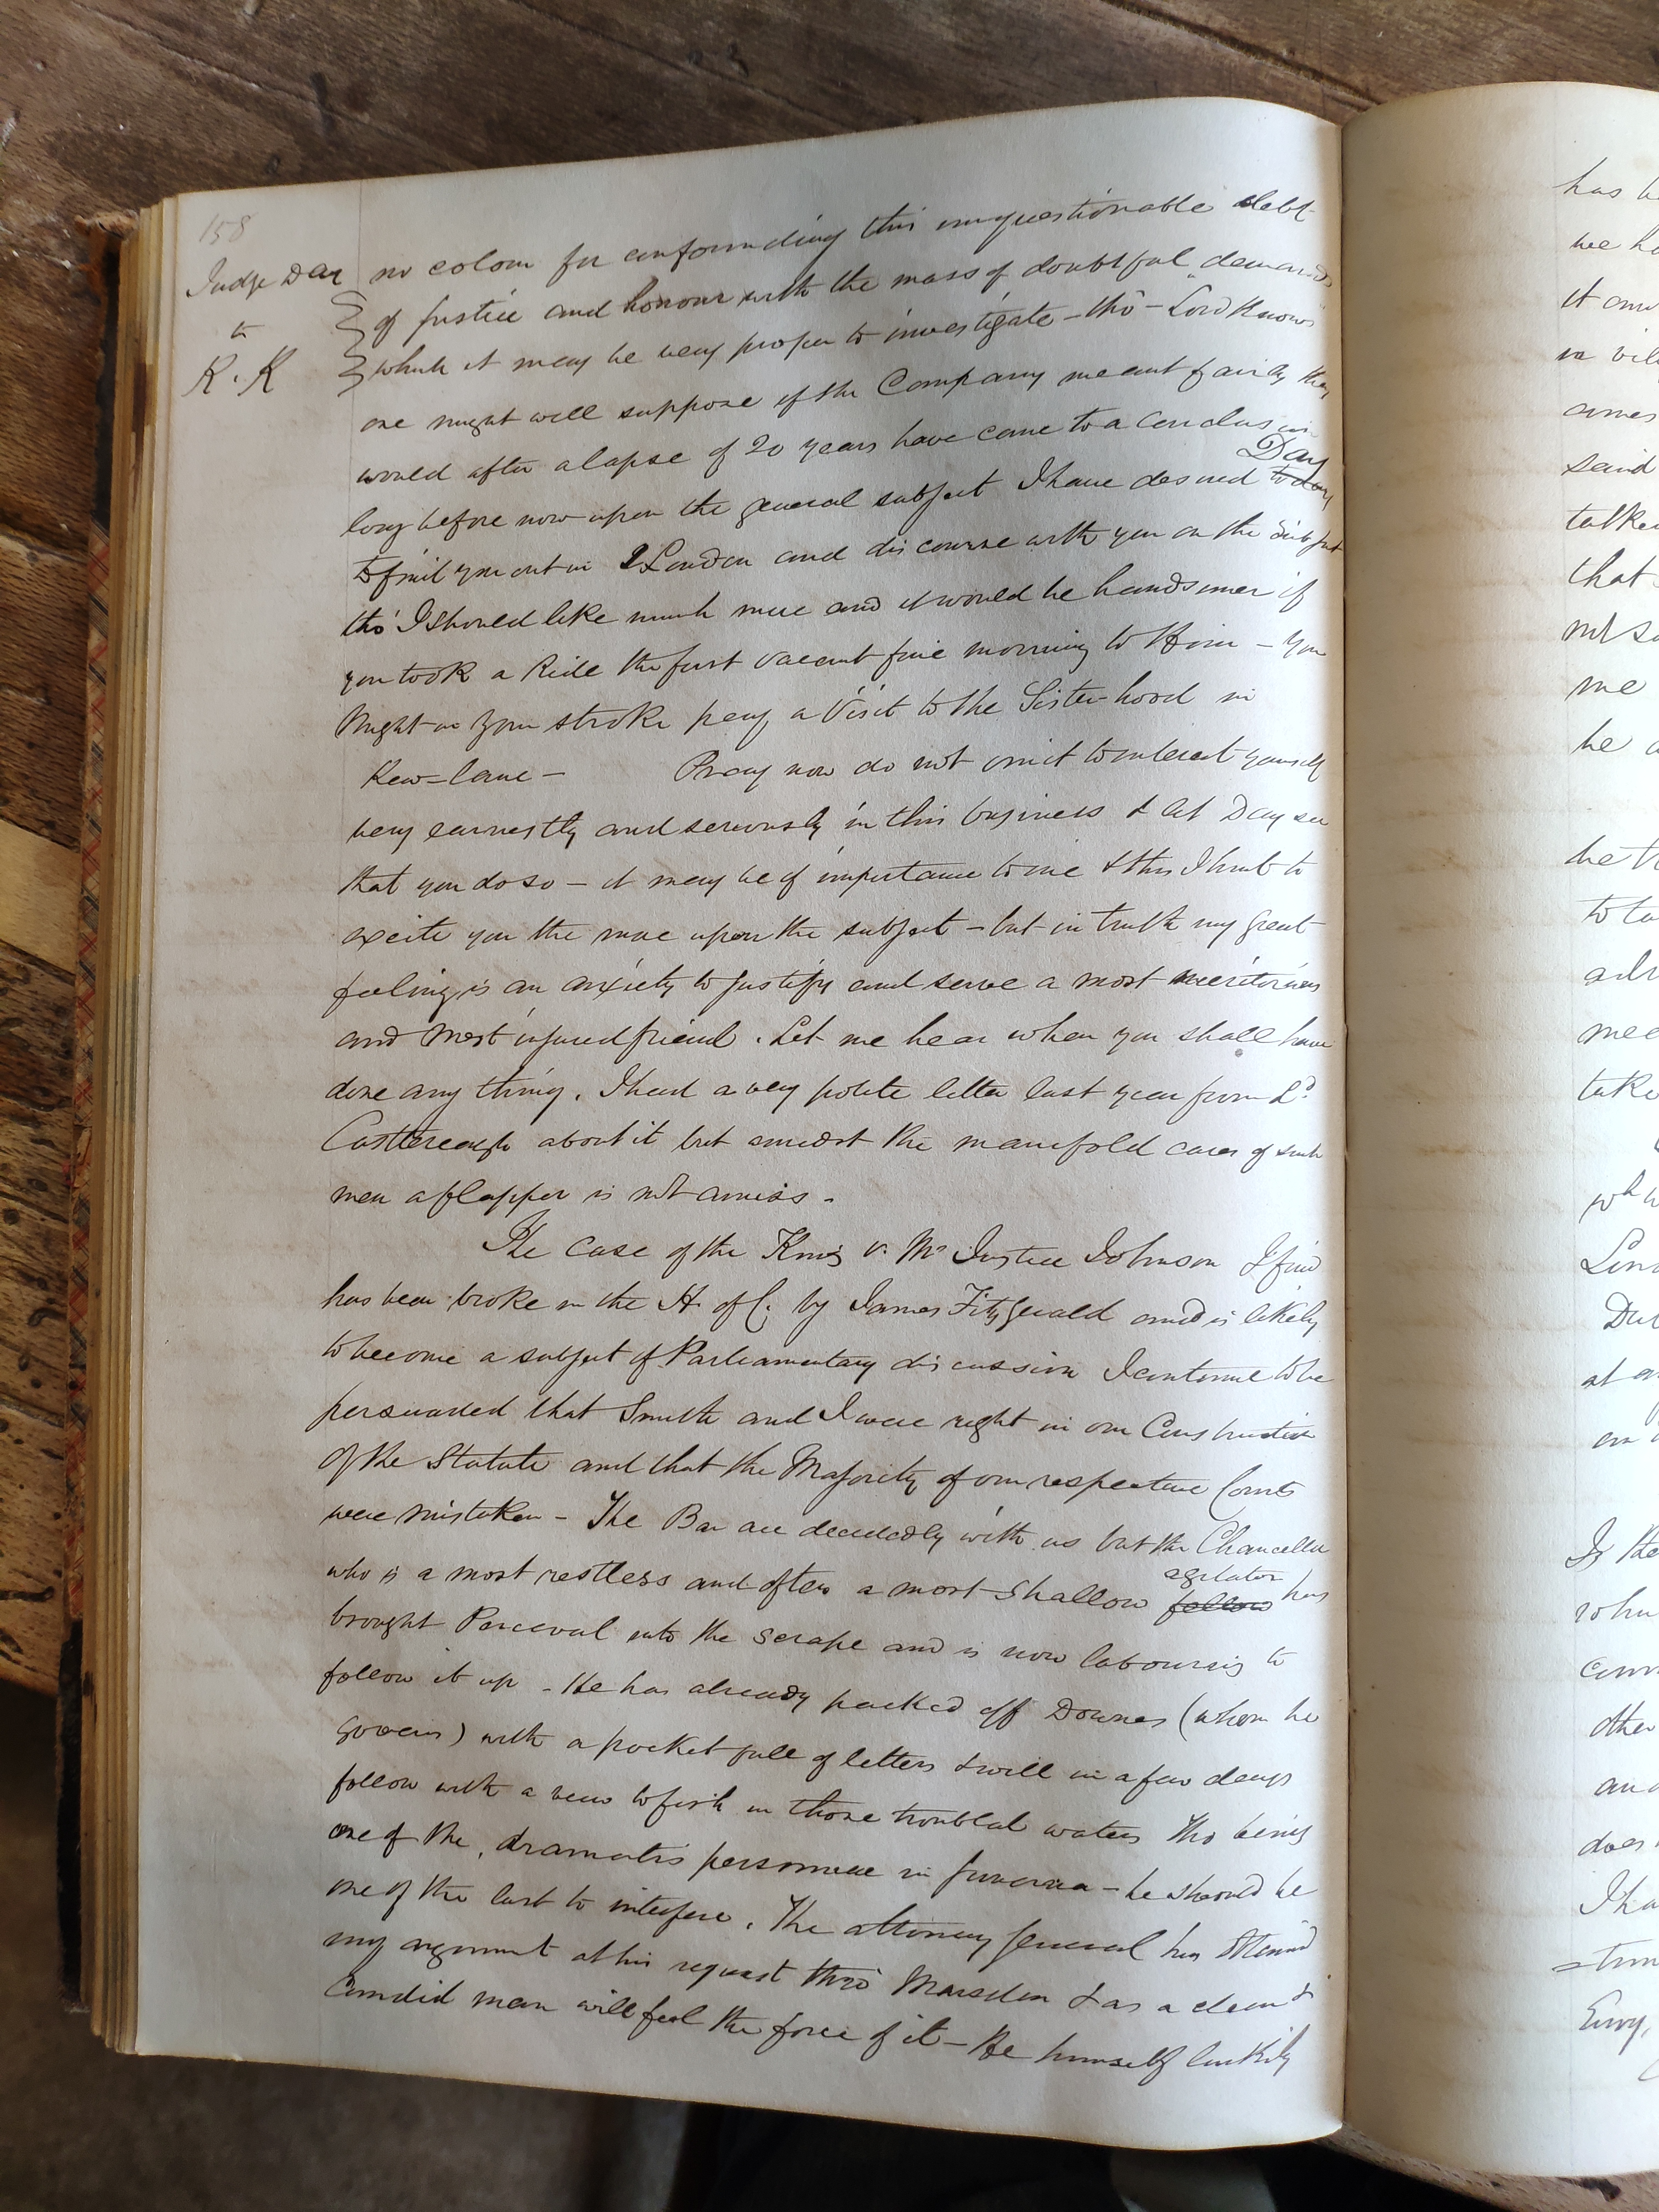 158
Judge Day
to
R. K
no colour for confounding this unquestionable debt
of justice and honour with the mass of doubtful demands
which it may be very proper to investigate - tho' - Lord Knows
one might well suppose if the Company meant fairly they
would after a lapse of 20 years have come to a conclusion
long before now upon the general subject I have desired to day Day
to find you out in London and discourse with you on the subject
tho' I should like much more and it would be handsomer if
you took a Ride the first vacant fine morning to Him - you
Might in your stroke pay a Visit to the Sister-hood in
Kew-lane - Pray now do not omit to interest yourself
very earnestly and seriously in this business & let Day see
that you do so - it may be of importance to me & this I hint to
excite you the more upon the subject - but in truth my great
feeling is an anxiety to justify and serve a most meritorious
and most injured friend. Let me hear when you shall have
done any thing. I had a very polite letter last year from Ld
Castlereagh about it but amidst the manifold cares of such
men a flapper is not amiss -
The Case of the King v. Mr Justice Johnson I find
has been broke in the H. of C. by James Fitzgerald and is likely
to become a subject of Parliamentary discussion I continue to be
persuaded that Smith and I were right in our Construction
Of the Statute and that the Majority of our respective Courts
were mistaken - The Bar are decidedly with us but the Chancellor
who is a most restless and often a most shallow fellow agitator has
brought Perceval into the scrape and is now labouring to
follow it up - He has already packed off Downes (whom he
governs) with a pocket full of letters & will in a few days
follow with a view to fish in those troubled waters tho being
one of the, dramatis personae in - he should be
one of the last to interfere. The attorney general has obtained
my argument at his request thro' Marsden & as a clear &
Candid man will feel the force of it - He himself luckily
has
we ha
it
in
said
talke
that
me
he
to
mee
take
wh
at
Is the
other
does
I ha
Envy,